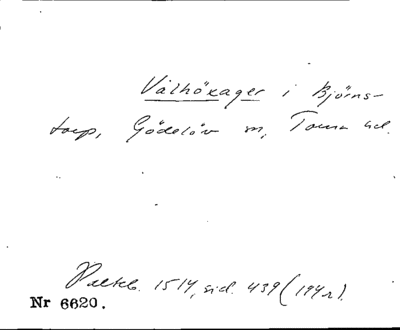 Välhöxager i Björns-
torp, Gödelöv sn, Torna hd.
Palteb. 1514, sid. 439 (194r).
Nr 6620.